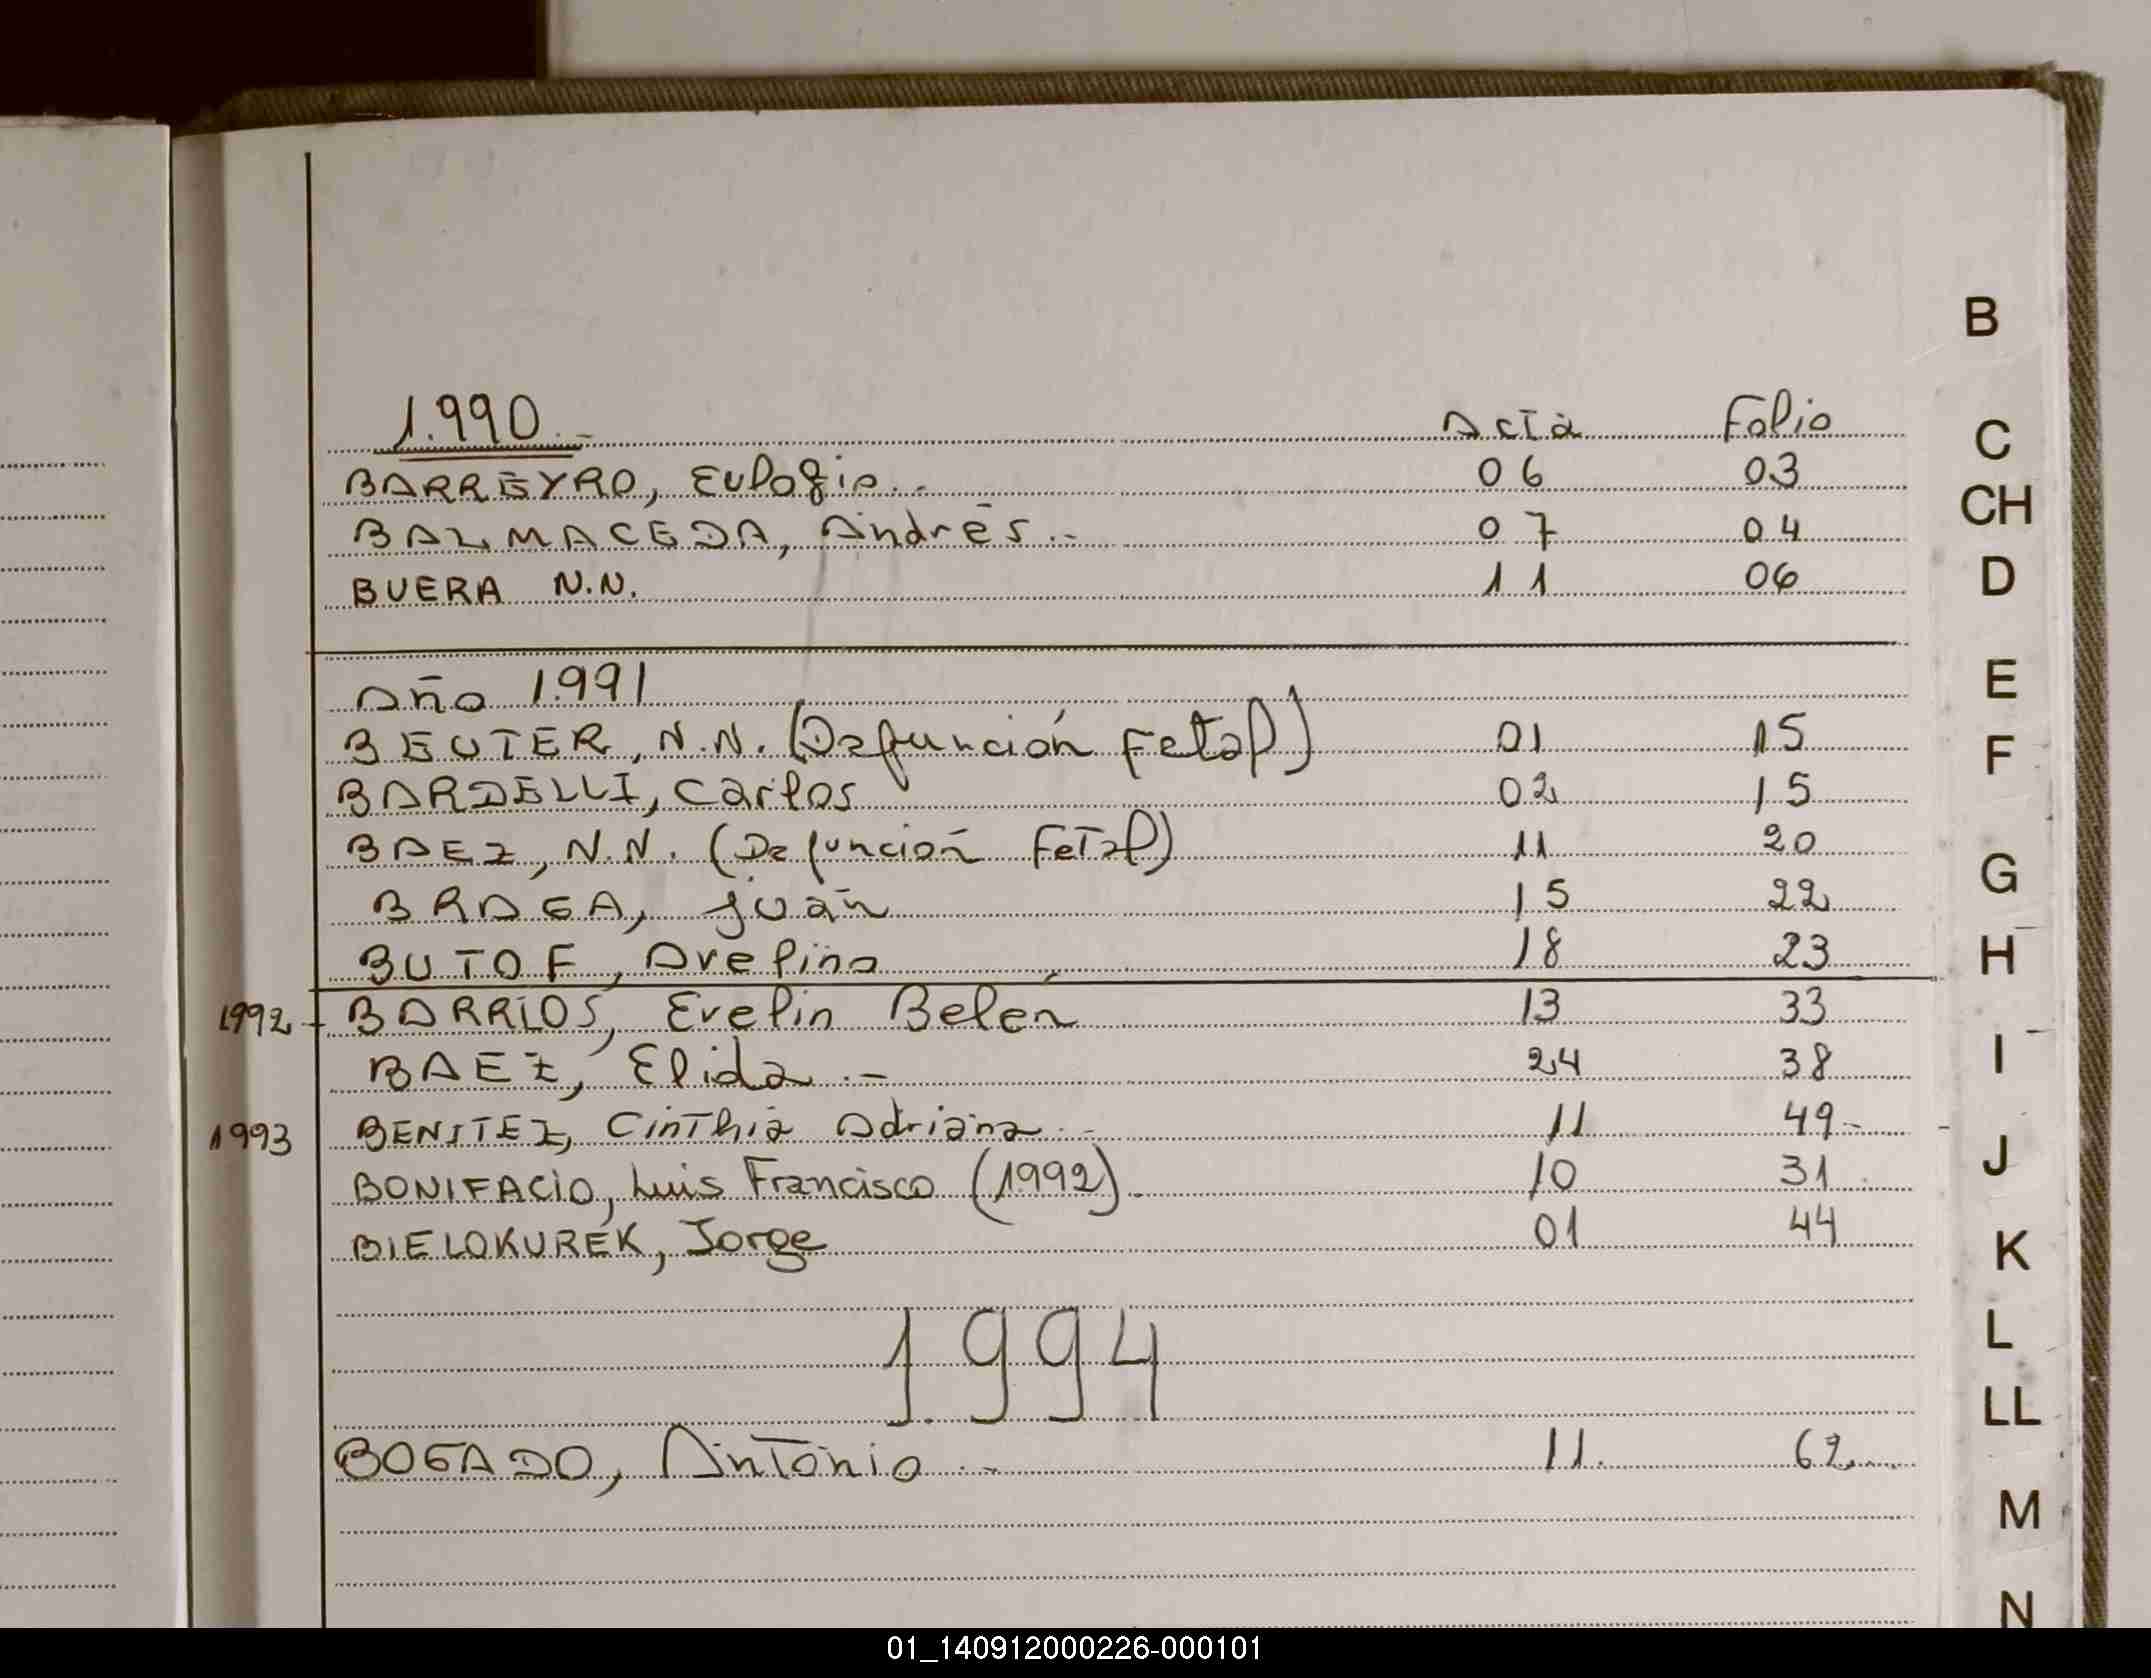 B
1.990.- Acta Folio
C
BARREYRO, Eulogio.- 06 03
CH
BALMACEDA, Andrés.- 07 04
D
BUERA N.N. 11 06
E
Año 1.991
BEUTER, N.N. (Defunción Fetal) 01 15
F
BARDELLI, Carlos 02 15
BAEZ, N.N. (Defunción Fetal) 11 20
G
BRAGA, Juan 15 22
BUTOF, Avelino 18 23
H
1992 - BARRIOS, Evelin Belén 13 33
I
BAEZ, Elida.- 24 38
1993 BENITEZ, Cinthia Adriana.- 11 49-
J
BONIFACIO, Luis Francisco (1992). 10 31.
BIELOKUREK, Jorge 01 44
K
L
1994
LL
BOGADO, Antonio.- 11. 62
M
N
01_140912000226-000101